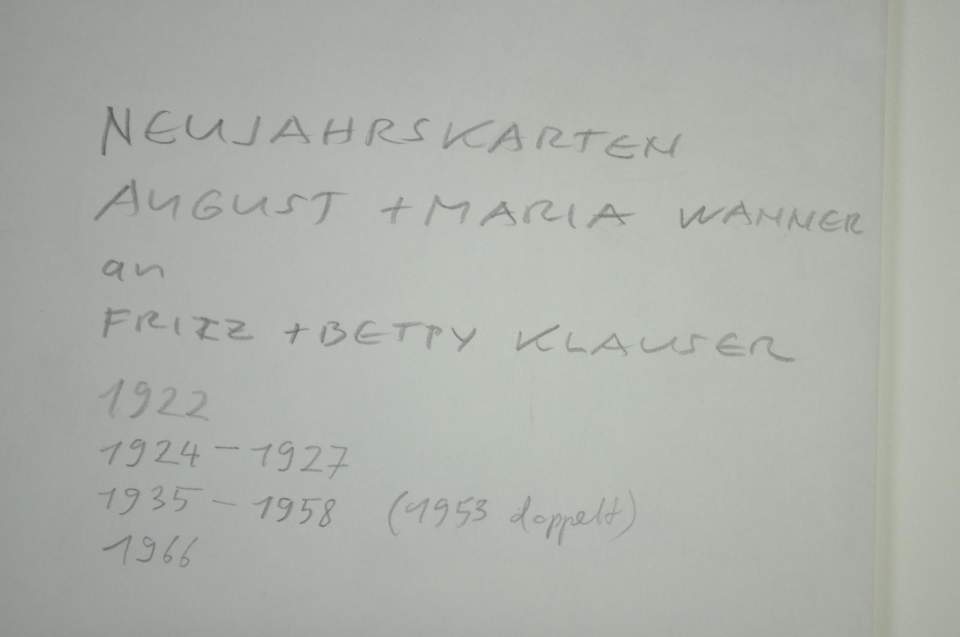 NEUJAHRSKARTEN
AUGUST + MARIA WANNER
an
FRITZ + BETTY KLAUSER
1922
1924 – 1927
1935 – 1958 (1953 doppelt)
1966